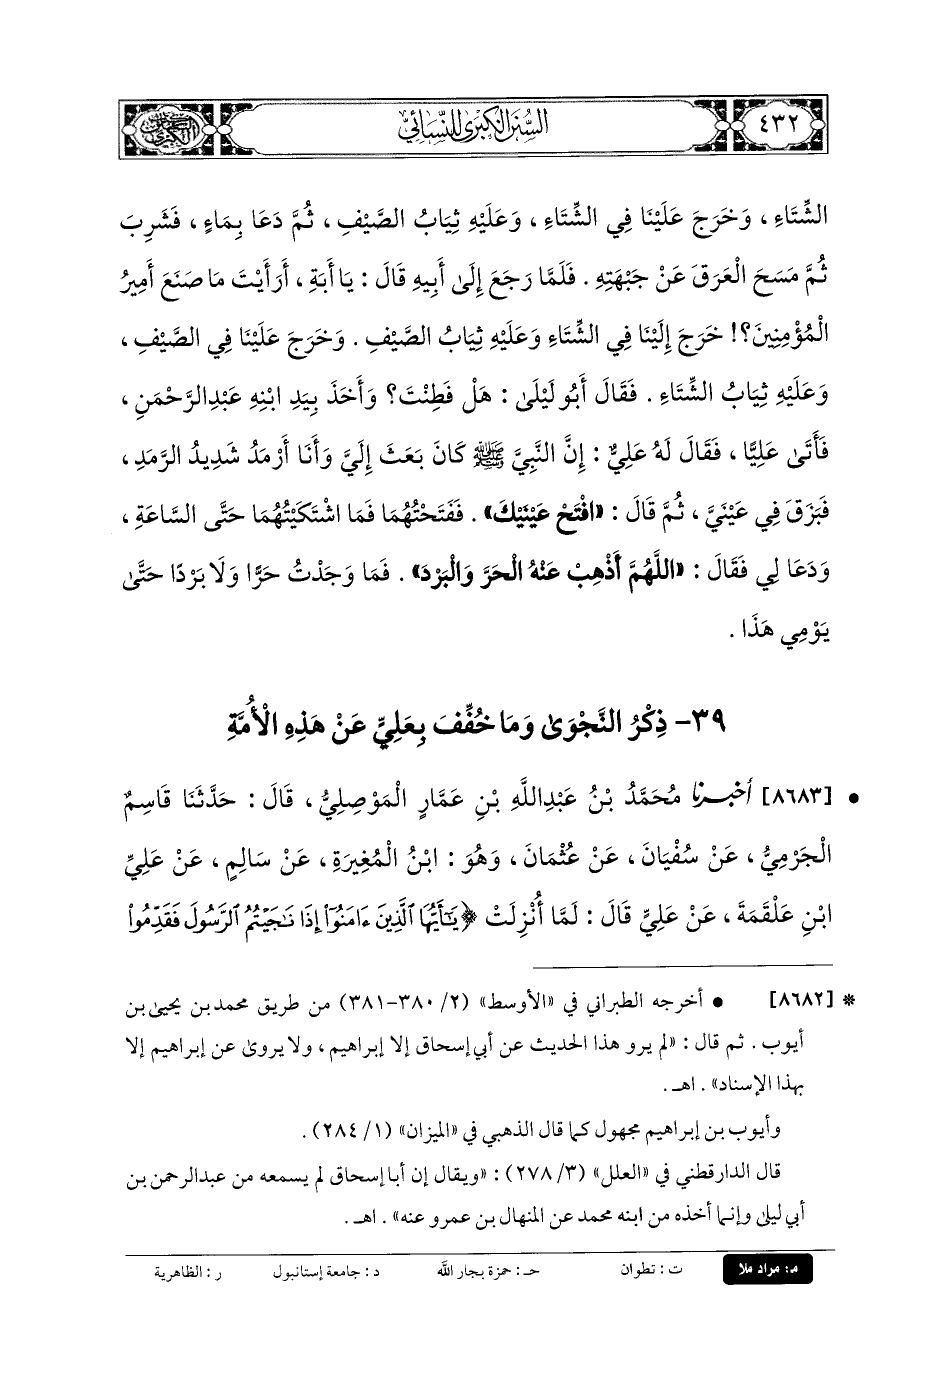 ٤٣٢
السُّنَنُ الكُبْرَىٰ لِلنَّسَائِيِّ
الشِّتَاءِ ، وَخَرَجَ عَلَيْنَا فِي الشِّتَاءِ ، وَعَلَيْهِ ثِيَابُ الصَّيْفِ ، ثُمَّ دَعَا بِمَاءٍ ، فَشَرِبَ
ثُمَّ مَسَحَ الْعَرَقَ عَنْ جَبْهَتِهِ . فَلَمَّا رَجَعَ إِلَىٰ أَبِيهِ قَالَ : يَا أَبَةِ ، أَرَأَيْتَ مَا صَنَعَ أَمِيرُ
الْمُؤْمِنِينَ؟! خَرَجَ إِلَيْنَا فِي الشِّتَاءِ وَعَلَيْهِ ثِيَابُ الصَّيْفِ . وَخَرَجَ عَلَيْنَا فِي الصَّيْفِ ،
وَعَلَيْهِ ثِيَابُ الشِّتَاءِ . فَقَالَ أَبُو لَيْلَىٰ : هَلْ فَطِنْتَ؟ وَأَخَذَ بِيَدِ ابْنِهِ عَبْدِالرَّحْمَنِ ،
فَأَتَىٰ عَلِيًّا ، فَقَالَ لَهُ عَلِيٌّ : إِنَّ النَّبِيَّ ﷺ كَانَ بَعَثَ إِلَيَّ وَأَنَا أَرْمَدُ شَدِيدُ الرَّمَدِ ،
فَبَزَقَ فِي عَيْنَيَّ ، ثُمَّ قَالَ : «افْتَحْ عَيْنَيْكَ» . فَفَتَحْتُهُمَا فَمَا اشْتَكَيْتُهُمَا حَتَّى السَّاعَةِ ،
وَدَعَا لِي فَقَالَ : «اللَّهُمَّ أَذْهِبْ عَنْهُ الْحَرَّ وَالْبَرْدَ» . فَمَا وَجَدْتُ حَرًّا وَلَا بَرْدًا حَتَّىٰ
يَوْمِي هَذَا .
٣٩- ذِكْرُ النَّجْوَىٰ وَمَا خُفِّفَ بِعَلِيٍّ عَنْ هَذِهِ الْأُمَّةِ
• [٨٦٨٣] أخبرنا مُحَمَّدُ بْنُ عَبْدِاللَّهِ بْنِ عَمَّارٍ الْمَوْصِلِيُّ ، قَالَ : حَدَّثَنَا قَاسِمٌ
الْجَرْمِيُّ ، عَنْ سُفْيَانَ ، عَنْ عُثْمَانَ ، وَهُوَ : ابْنُ الْمُغِيرَةِ ، عَنْ سَالِمٍ ، عَنْ عَلِيِّ
ابْنِ عَلْقَمَةَ ، عَنْ عَلِيٍّ قَالَ : لَمَّا أُنْزِلَتْ ﴿يَٰٓأَيُّهَا ٱلَّذِينَ ءَامَنُوٓا۟ إِذَا نَٰجَيْتُمُ ٱلرَّسُولَ فَقَدِّمُوا۟
* [٨٦٨٢] • أخرجه الطبراني في «الأوسط» (٢/ ٣٨٠-٣٨١) من طريق محمد بن يحيىٰ بن
أيوب . ثم قال : «لم يرو هذا الحديث عن أبي إسحاق إلا إبراهيم ، ولا يروىٰ عن إبراهيم إلا
بهذا الإسناد» . اهـ .
وأيوب بن إبراهيم مجهول كما قال الذهبي في «الميزان» (١/ ٢٨٤) .
قال الدارقطني في «العلل» (٣/ ٢٧٨) : «ويقال إن أبا إسحاق لم يسمعه من عبدالرحمن بن
أبي ليلىٰ وإنما أخذه من ابنه محمد عن المنهال بن عمرو عنه» . اهـ .
م: مراد ملا ت : تطوان حـ : حمزة بجار اللَّه د : جامعة إستانبول ر : الظاهرية